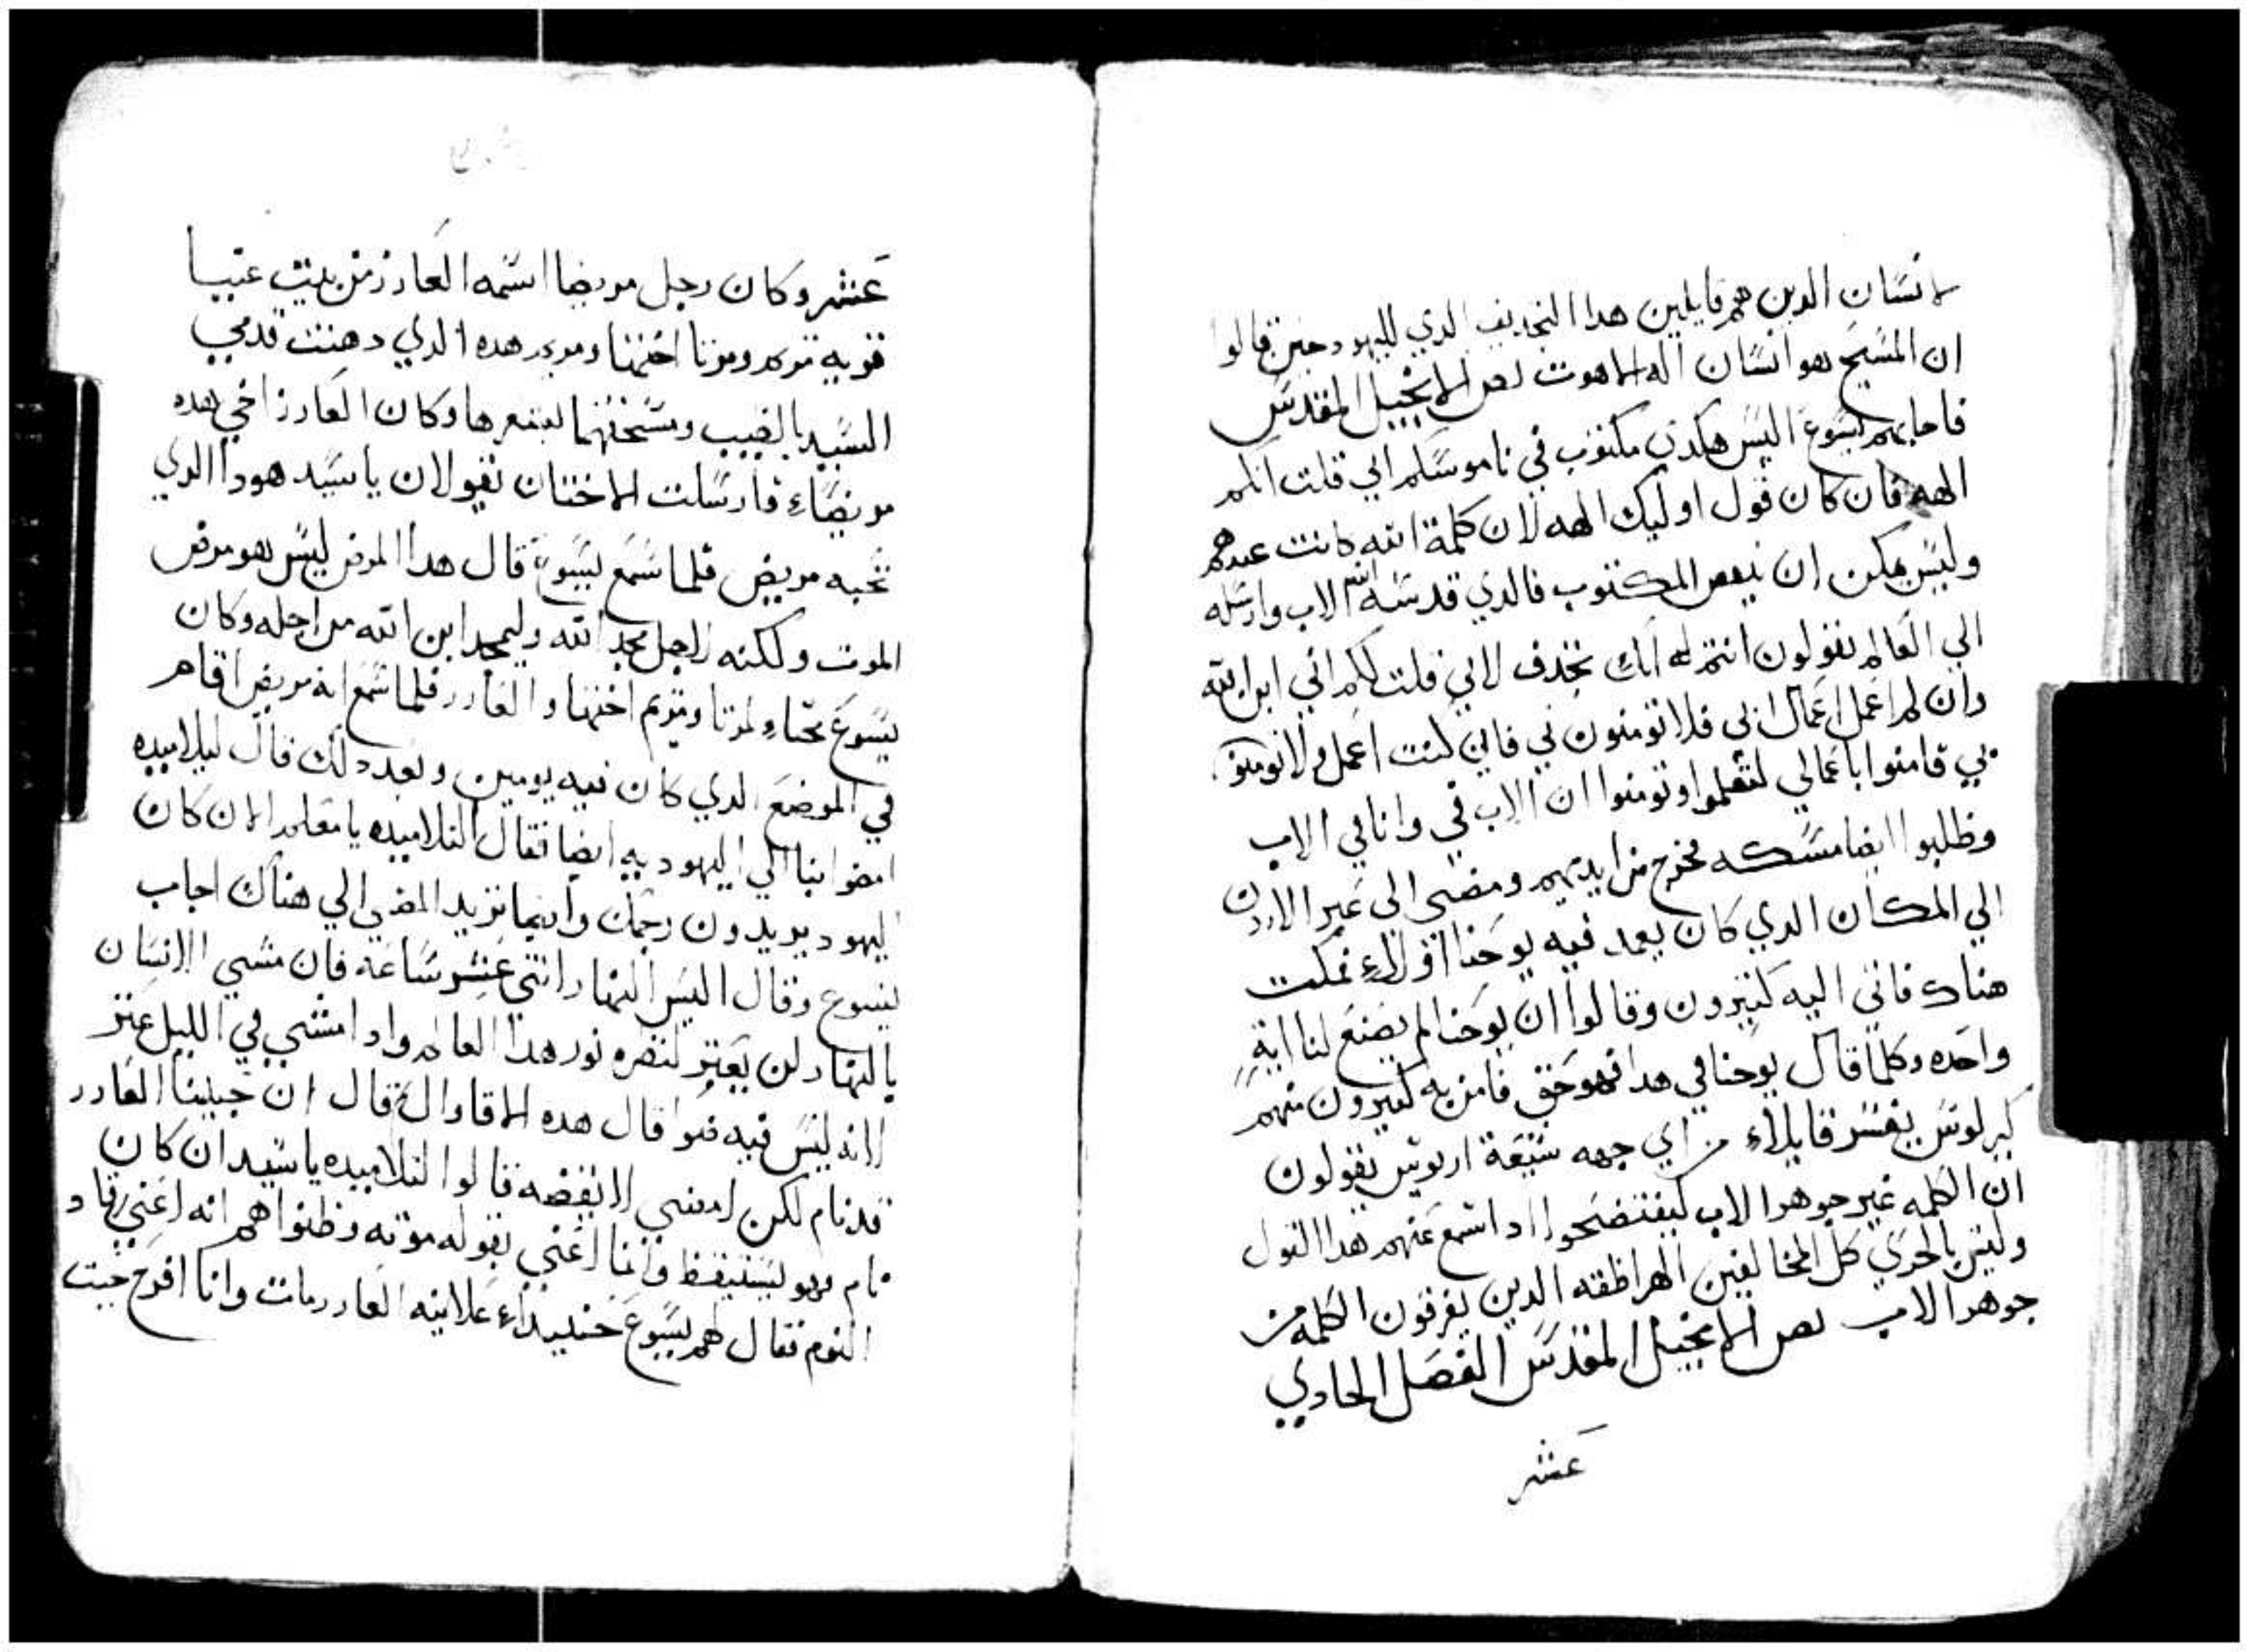 لانسان الدين هم قايلين هدا التجديف الدي لليهود حين قالوا
ان المسيح هو انسان اله الاهوت نص الانجيل المقدس
فاجابهم يسوع اليس هكدى مكتوب في ناموسكم اني قلت انكم
الهه فان كان قول اوليك الهه لان كلمة الله كانت عندهم
وليس يمكن ان ينقص المكتوب فالدي قدسه الله الاب وارسله
الي العالم تقولون انتم له انك تجدف لاني قلت لكم اني ابن الله
وان لم اعمل اعمال ابي فلا تومنون بي فان كنت اعمل ولا تومنو
بي فامنوا باعمالي لتعلموا وتومنوا ان الاب في وانا في الاب
وظلبوا ايضا مسكه فخرج من ايديهم ومضي الي عبر الاردن
الي المكان الدي كان يعمد فيه يوحنا اولاء فمكت
هناك فاتي اليه كتيرون وقالوا ان يوحنا لم يصنع لنا اية
واحده وكلما قال يوحنا في هدا فهو حق فامن به كتيرون منهم
كيرلوس يفسر قايلاء من اي جهه شيعة اريوس يقولون
ان الكلمه غير جوهر الاب ليفتضحوا ادا سمع عنهم هدا القول
وليس بالحري كل المخالفين الهراظقه الدين يفرقون الكلمه من
جوهر الاب نص الانجيل المقدس الفصل الحادي
عشر
عشر وكان رجل مريضا اسمه العازر من بيت عنيا
قريه مريم ومرتا اختها ومريم هده الدي دهنت قدمي
السيد بالطيب ومسحتهما بشعرها وكان العازر اخي هده
مريضاء فارسلت الاختان تقولان ياسيد هودا الدي
تحبه مريض فلما سمع يسوع قال هدا المرض ليس هو مرض
الموت ولكنه لاجل مجد الله وليمجد ابن الله من اجله وكان
يسوع محباء لمرتا ومريم اختها والعازر فلما سمع انه مريض اقام
في الموضع الدي كان فيه يومين وبعد دلك قال لتلاميده
امضوا بنا الي اليهوديه ايضا فقال التلاميده يا معلم الان كان
اليهود يريدون رجمك وايضا تريد المضي الي هناك اجاب
يسوع وقال اليس النهار اتني عشر ساعه فان مشي الانسان
بالنهار لن يعتر لنضره نور هدا العالم وادا مشي في الليل عتر
لانه ليس فيه ضو قال هده الاقاوال قال ان حبيبنا العازر
قد نام لكن امضي لايقضه قالوا التلاميده ياسيد ان كان
نام فهو يستيقظ وانما اعني بقوله موته وظنوا هم انه اعني رقاد
النوم فقال لهم يسوع حنيداء علانيه العازر مات وانا افرح حيت